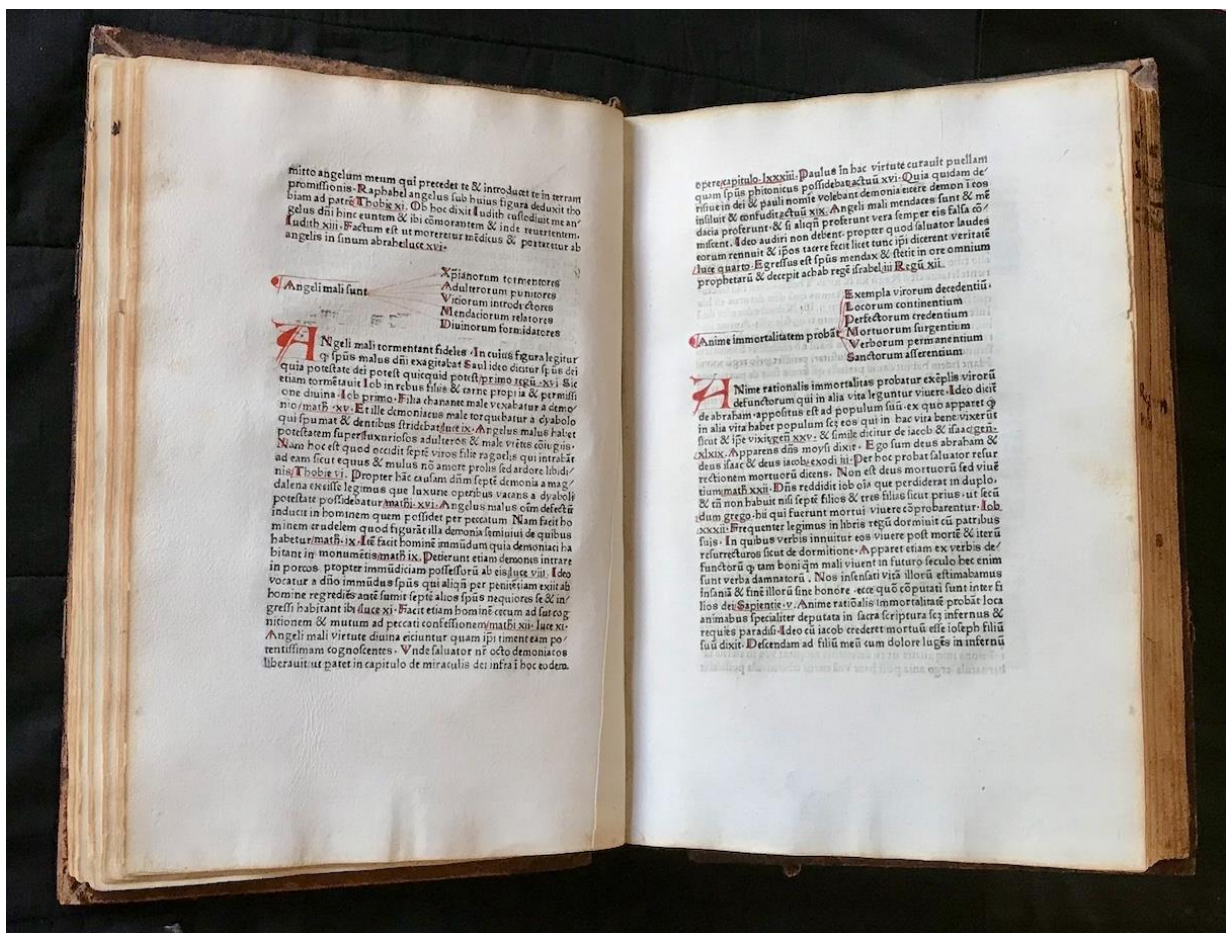 mitto angelum meum qui precedet te & introducet te in terram
promissionis. Raphahel angelus sub huius figura deduxit tho
biam ad patrē Thobie xi. Ob hoc dixit Iudith custodiuit me an/
gelus dñi hinc euntem & ibi cōmorantem & inde reuertentem.
Iudith xiii. Factum est ut moreretur mēdicus & portaretur ab
angelis in sinum abrahe luce xvi.
Xpianorum tormentores
Adulterorum punitores
Angeli mali sunt
Vitiorum introductores
Mendaciorum relatores
Diuinorum formidatores
ANgeli mali tormentant fideles. In cuius figura legitur
ꝙ spūs malus dñi exagitabat Saul ideo dicitur spūs dei
quia potestate dei potest quicquid potest primo regū .xvi. Sic
etiam tormētauit Iob in rebus filiis & carne propria & permissi
one diuina. Iob primo. Filia chananee male vexabatur a demo/
nio math. xv. Et ille demoniacus male torquebatur a dyabolo
qui spumat & dentibus stridebat luce ix. Angelus malus habet
potestatem super luxuriosos adulteros & male vtētes cōiugiis.
Nam hoc est quod occidit septē viros filie raguelis qui intrabāt
ad eam sicut equus & mulus nō amore prolis sed ardore libidi/
nis Thobie vi. Propter hāc causam dñm septē demonia a mag/
dalena eiecisse legimus que luxurie operibus vacans a dyaboli
potestate possidebatur mathi. xvi. Angelus malus oēm defectū
inducit in hominem quem possidet per peccatum Nam facit ho
minem crudelem quod figurāt illa demonia semiuiui de quibus
habetur math. ix. Itē facit hominē immūdum quia demoniaci ha
bitant in monumētis math ix. Petierunt etiam demones intrare
in porcos propter immūdiciam possessorū ab eis luce viii. Ideo
vocatur a dño immūdus spūs qui aliqñ per penitētiam exiit ab
homine regrediēs antē sumit septē alios spūs nequiores se & in/
gressi habitant ibi luce xi. Facit etiam hominē cecum ad sui cog
nitionem & mutum ad peccati confessionem mathi xii. luce xi.
Angeli mali virtute diuina eiciuntur quam ipi timent eam po/
tentissimam cognoscentes. Vnde saluator nr̄ octo demoniacos
liberauit ut patet in capitulo de miraculis dei infra ī hoc eodem.
opere capitulo lxxxiii. Paulus in hac virtute curauit puellam
quam spūs phitonicus possidebat actuū xvi. Quia quidam de/
risiue in dei & pauli nomīe volebant demonia eicere demon ī eos
insiluit & confudit actuū xix. Angeli mali mendaces sunt & mē
dacia proferunt. & si aliqñ proferunt vera semper eis falsa cō/
miscent. Ideo audiri non debent. propter quod saluator laudes
eorum rennuit & ipōs tacere fecit licet tunc ipi dicerent veritatē
luce quarto. Egressus est spūs mendax & stetit in ore omnium
prophetarū & decepit achab regē israhel iii Regū xii.
Exempla virorum decedentiū.
Locorum continentium
Perfectorum credentium
Anime immortalitatem probāt
Mortuorum surgentium
Verborum permanentium
Sanctorum asserentium
ANime rationalis immortalitas probatur exēplis virorū
defunctorum qui in alia vita leguntur viuere. Ideo dicit̄
de abraham. appositus est ad populum suū. ex quo apparet ꝙ
in alia vita habet populum scꝫ eos qui in hac vita bene vixerūt
sicut & ipē vixit gen xxv. & simile dicitur de iacob & isaac gen.
xlix. Apparens dñs moysi dixit. Ego sum deus abraham &
deus isaac & deus iacob exodi iii. Per hoc probat saluator resur
rectionem mortuorū dicens. Non est deus mortuorū sed viuē
tium math xxii. Dñs reddidit iob oīa que perdiderat in duplo,
& tñ non habuit nisi septē filios & tres filias sicut prius. ut secū
dum grego. hii qui fuerunt mortui viuere cōprobarentur. Iob
xxxii. Frequenter legimus in libris regū dormiuit cū patribus
suis. In quibus verbis innuitur eos viuere post mortē & iterū
resurrecturos sicut de dormitione. Apparet etiam ex verbis de/
functorū ꝙ tam boni qm̄ mali viuent in futuro seculo hec enim
sunt verba damnatorū. Nos insensati vitā illorū estimabamus
insaniā & finē illorū sine honore. ecce quō cōputati sunt inter fi
lios dei Sapientie. v. Anime ratiōalis immortalitatē probāt loca
animabus specialiter deputata in sacra scriptura scꝫ infernus &
requies paradisi. Ideo cū iacob crederet mortuū esse ioseph filiū
suū dixit. Descendam ad filiū meū cum dolore lugēs in infernū